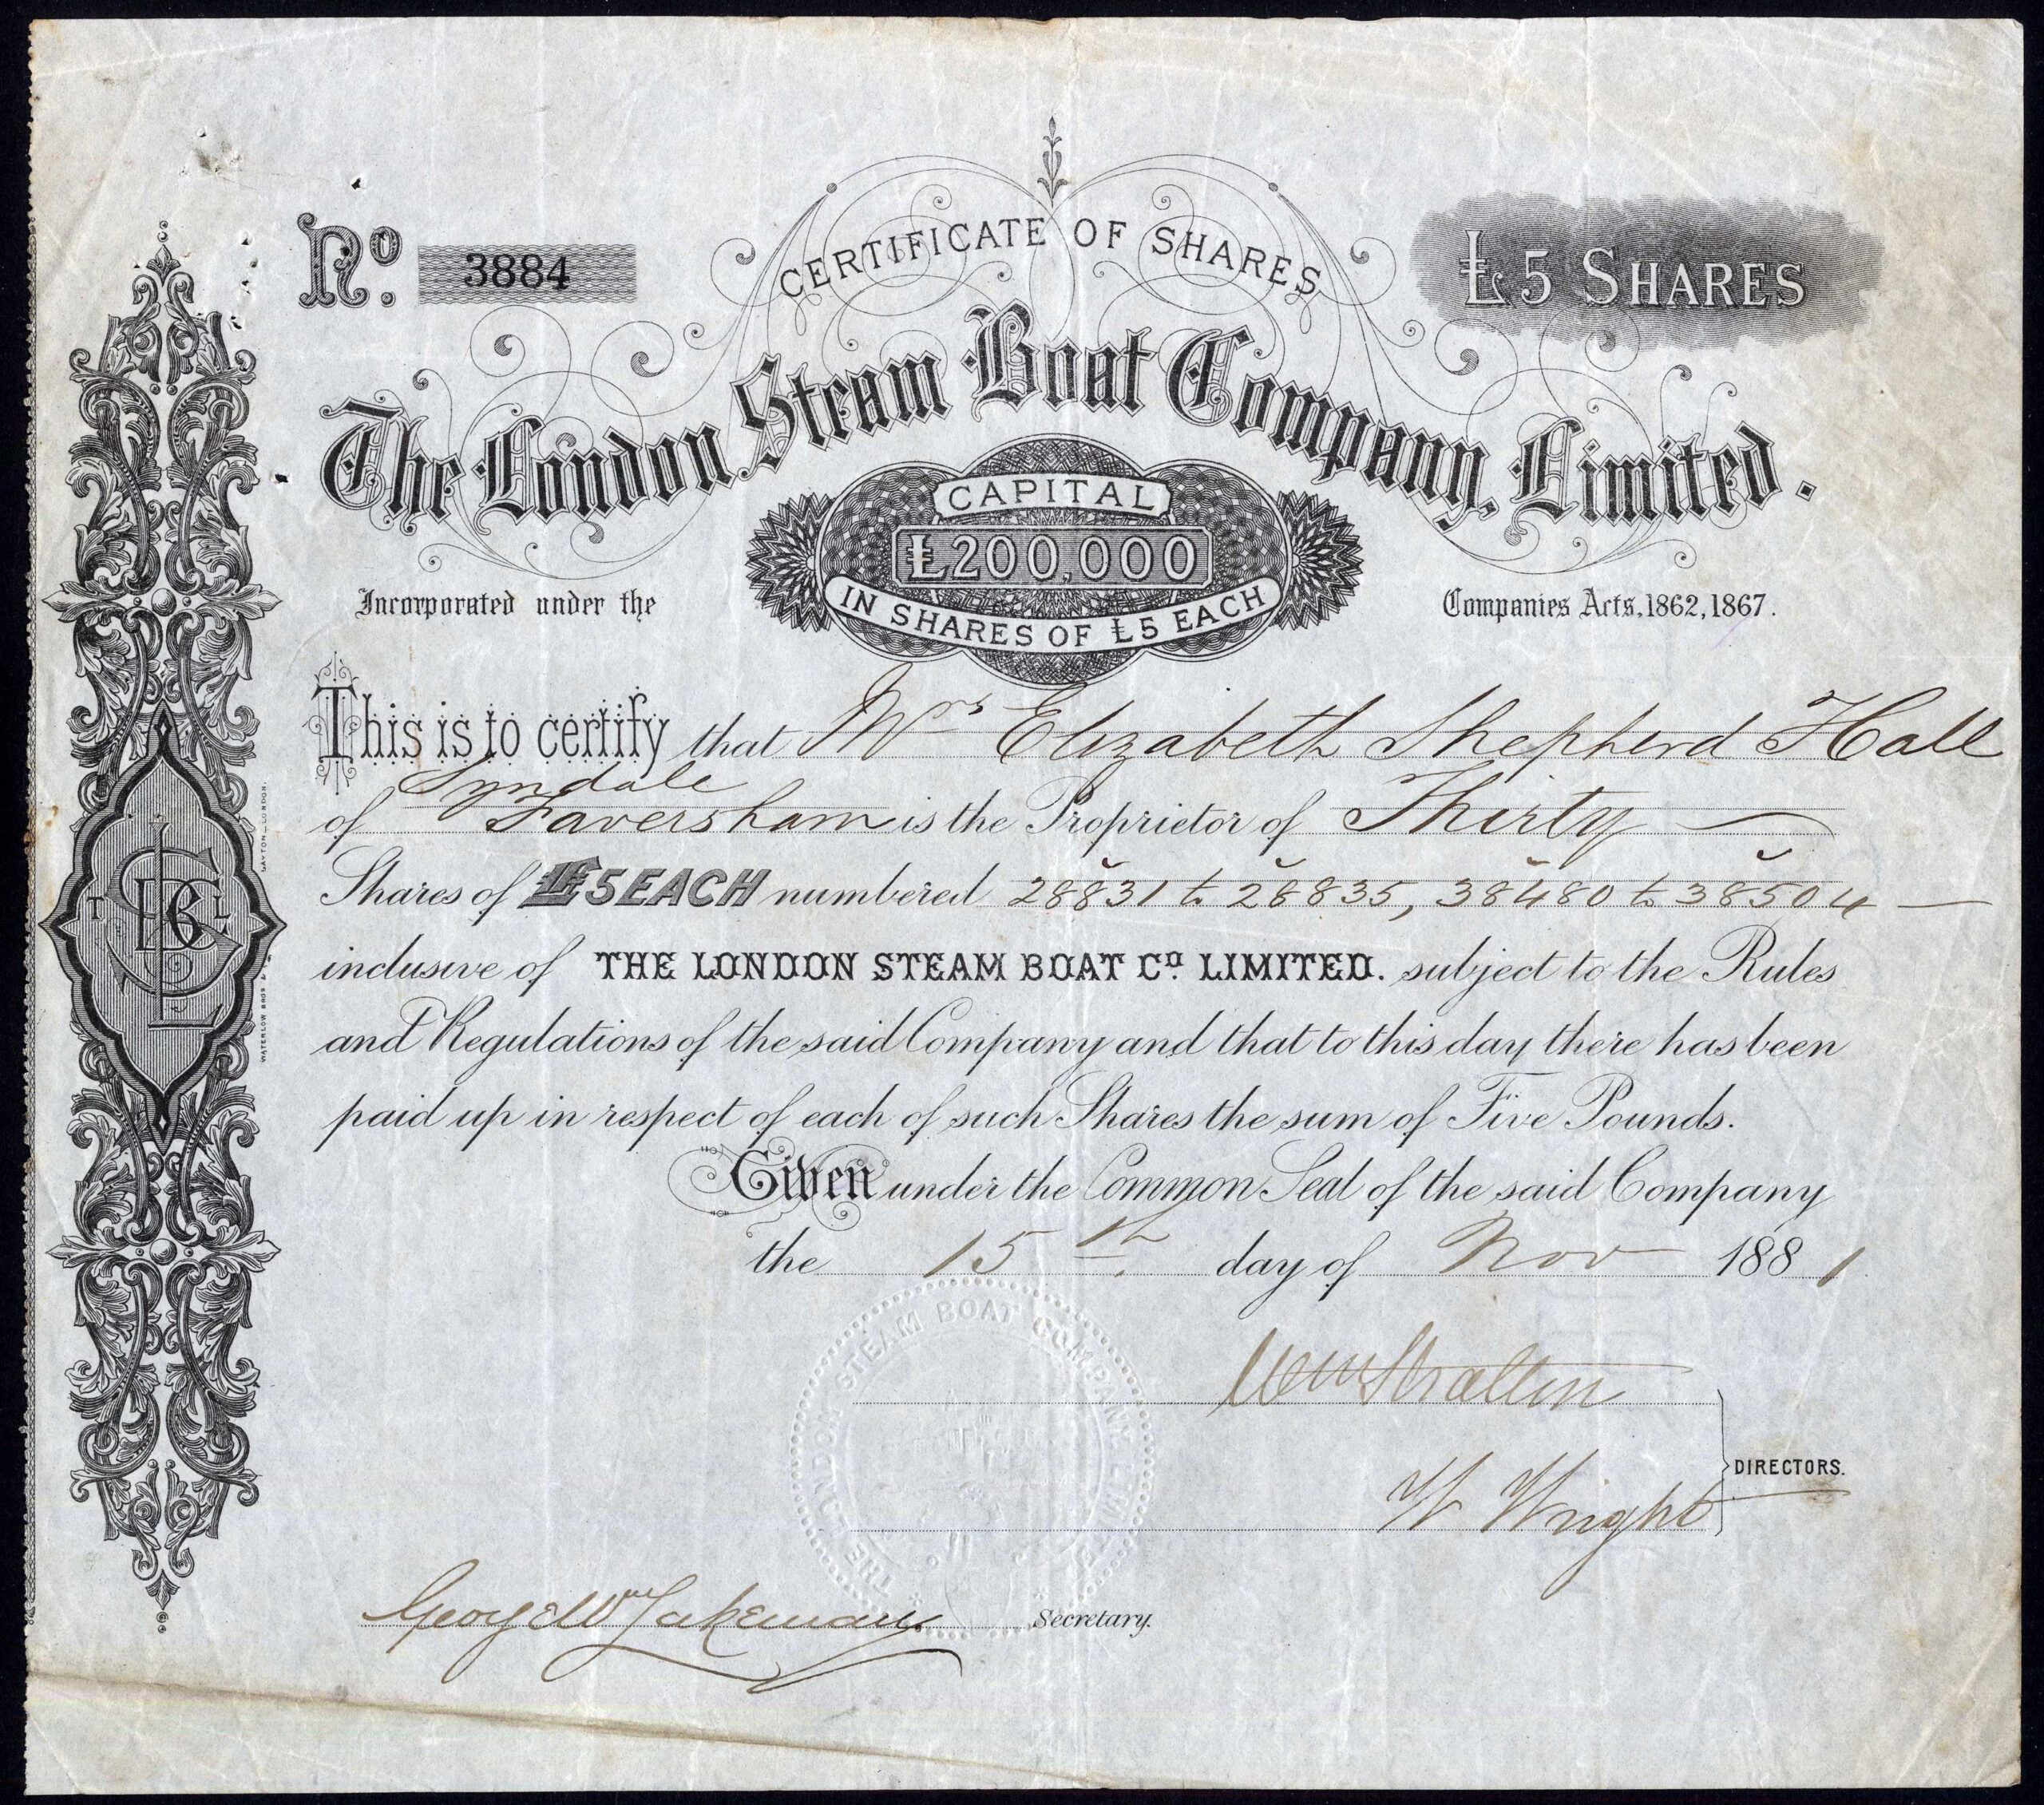 CERTIFICATE OF SHARES
No. 3884
£5 SHARES
The London Steam Boat Company, Limited.
CAPITAL
£200,000
IN SHARES OF £5 EACH
Incorporated under the Companies Acts, 1862, 1867.
This is to certify that Mrs Elizabeth Shepherd Hall
of Lyndale Faversham is the Proprietor of Thirty
Shares of £5 EACH numbered 28831 to 28835, 38480 to 38504
inclusive of THE LONDON STEAM BOAT Co. LIMITED. subject to the Rules
and Regulations of the said Company and that to this day there has been
paid up in respect of each of such Shares the sum of Five Pounds.
Given under the Common Seal of the said Company
the 15th day of Nov 1881
Wm Stratten
W Wright
DIRECTORS.
George Wm Takeman
Secretary.
THE LONDON STEAM BOAT COMPANY LIMITED
T L S B C L
WATERLOW BROS & LAYTON, LONDON.